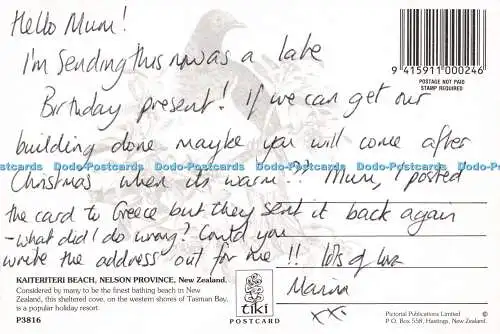 Hello Mum!
I'm sending this as a late
Birthday present! If we can get our
building done maybe you will come after
Christmas when its warm?? Mum, I posted
the card to Greece but they sent it back again
- what did I do wrong? Could you
write the address out for me!! lots of love
Marina
xxx
9 415911 000246
POSTAGE NOT PAID
STAMP REQUIRED
Dodo-Postcards Dodo-Postcards Dodo-Postcards Dodo-Postcards Dodo-Postcards
KAITERITERI BEACH, NELSON PROVINCE, New Zealand.
Considered by many to be the finest bathing beach in New
Zealand, this sheltered cove, on the western shores of Tasman Bay,
is a popular holiday resort.
P3816
tiki
POSTCARD
Pictorial Publications Limited ©
P.O. Box 558, Hastings, New Zealand.